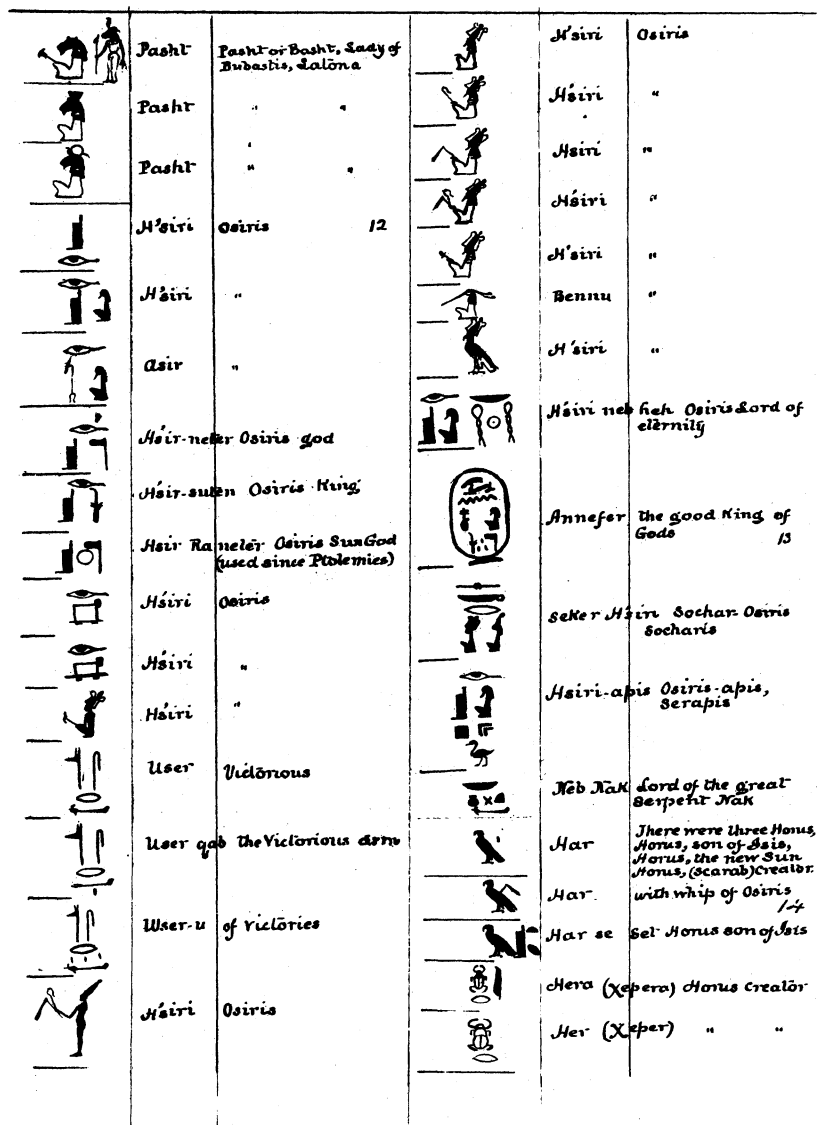 Pasht Pasht or Basht, Lady of
Bubastis, Latōna
Pasht " "
Pasht " "
H'siri Osiris 12
H'siri "
Asir "
H'sir-neter Osiris god
H'sir-suten Osiris King
Hsir Ra neter Osiris Sun God
(used since Ptolemies)
H'siri Osiris
H'siri "
H'siri "
User Victōrious
User qab the Victorious arm
User-u of victōries
H'siri Osiris
H'siri Osiris
H'siri "
Hsiri "
H'siri "
H'siri "
Bennu "
H'siri "
H'siri neb heh Osiris Lord of
eternity
Annefer the good King of
Gods 13
Seker H'siri Sochar-Osiris
Socharis
Hsiri-apis Osiris-apis,
Serapis
Neb Nak Lord of the great
Serpent Nak
Har There were three Horus,
Horus, son of Isis,
Horus, the new Sun
Horus, (scarab) Creator.
Har with whip of Osiris
14
Har se Set Horus son of Isis
Hera (Xepera) Horus Creator
Her (Xeper) " "